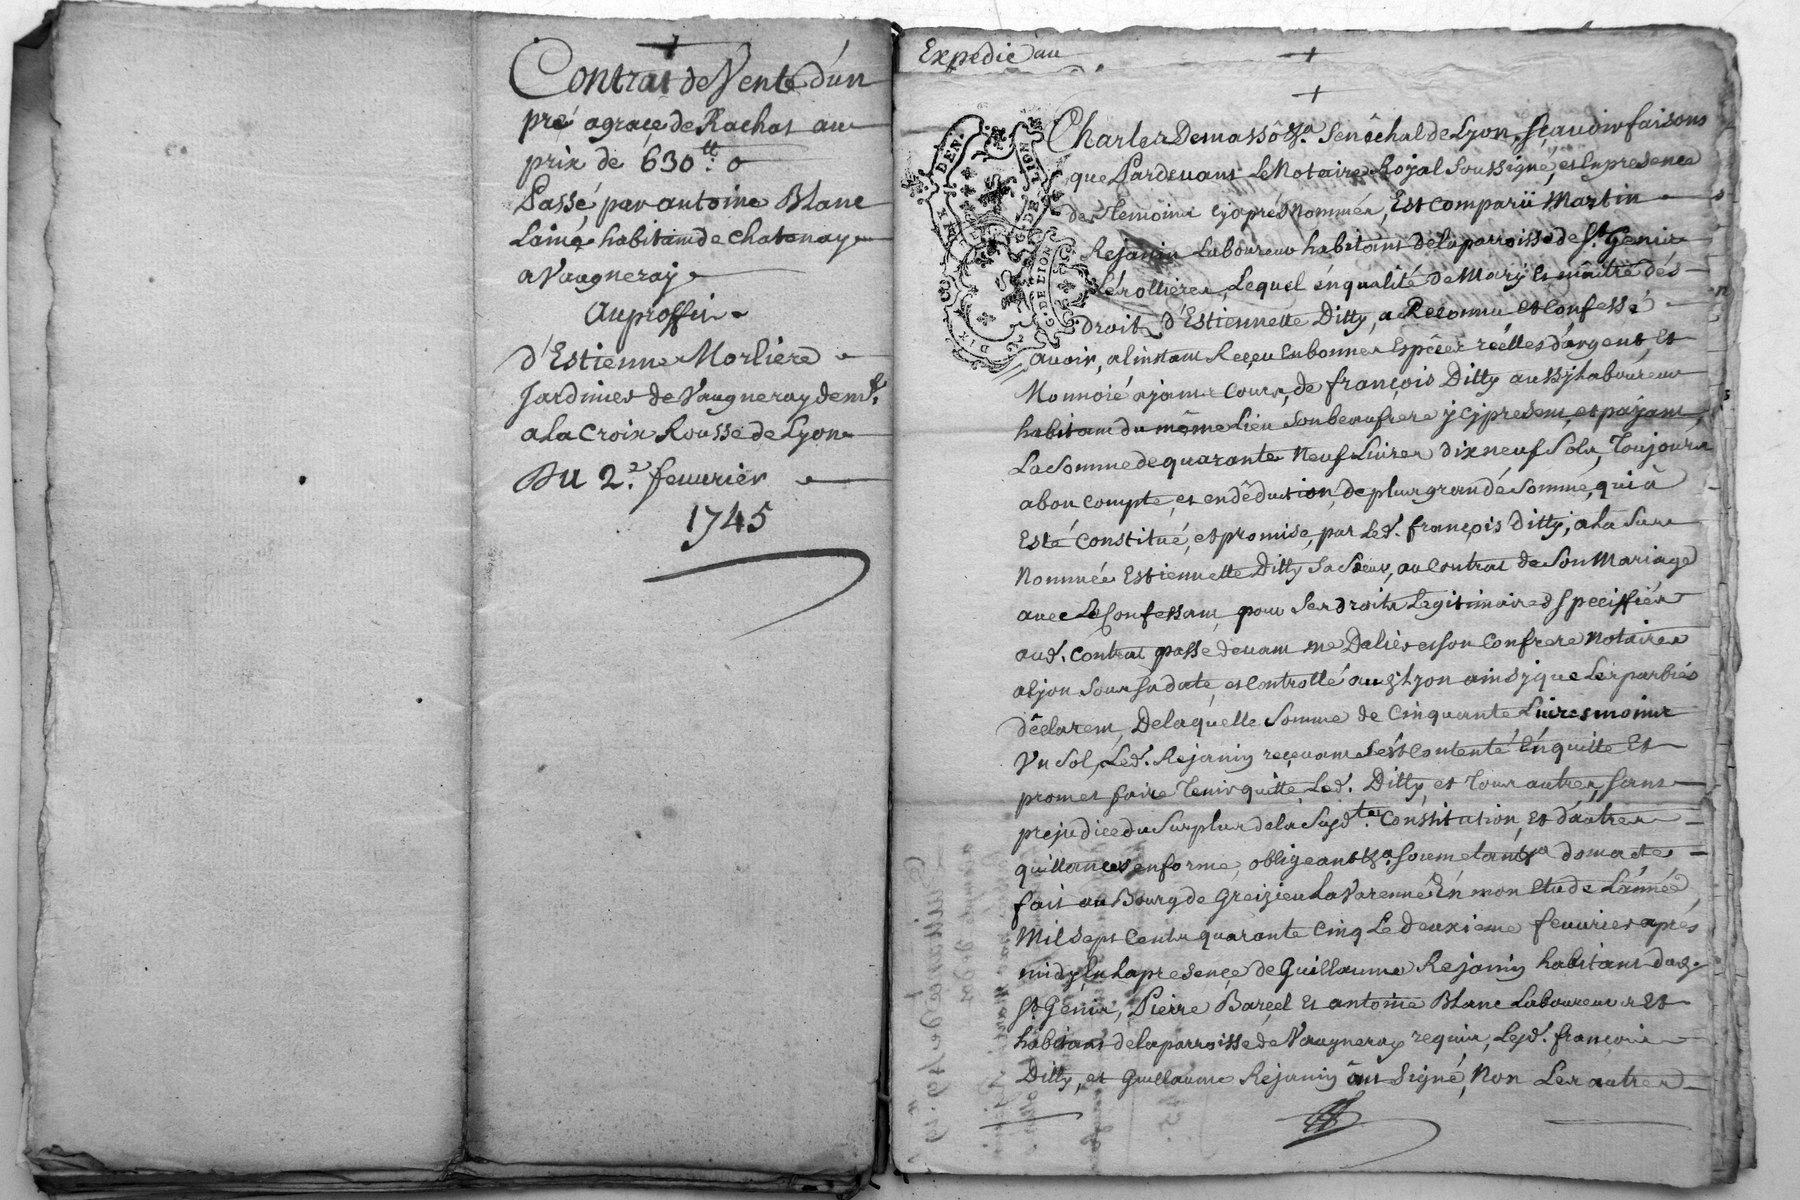 Contrat de Vente d'un
pré agraçe de Rachat au
prix de 630 tt. o
Passé, par antoine Blanc
Lainé habitant de chatenay
a Vaugneray
Au proffit
d'Estienne Morliere
Jardinier de Vaugneray dem.t
a La Croix Rousse de Lyon
Du 2.e feuurier
1745
Expedié au
Charles De masso &.a Senêchal de Lyon, sçauoir faisons
que Pardeuant Le Notaire Royal Soussigné, et En presence
des Temoins cyaprés Nommés, Est comparü Martin
Rejanin Laboureur habitant de la parroisse de St. Genis
Lérollieres, Lequel én qualité de Mary Et maître dés
droits d'Estiennette Ditty, a Reconnu et Confessé
auoir, a linstant Reçeu En bonnes Espéces réelles d'argent, Et
Monnoié ajant Cours, de françois Ditty aussy Laboureur
habitant du même Lieu son beaufrere ycy present, et pajant,
La Somme de quarante Neuf Liures dix neuf Sols, Toujours
a bon compte, et en déduction, de plus grande somme, qui à
Esté Constitué, et promise, par Led. françois Ditty, a La
Nommée Estiennette Ditty Sa Sœur, au Contrat de Son Mariage
auec Le Confessant, pour Ses droits Legitimaires Speciffiés
aud. Contrat passé deuant me Daliés et son Confrere Notaires
a Lyon Sous sa date, et Controllé aud. Lyon ainsy que Les parties
déclarent, De laquelle Somme de Cinquante Liures moins
Vn Sol, Led. Rejanin reçeuant s'est contenté En quitte Et
promet faire Tenir quitte Led. Ditty, et Tous autres, Sans
prejudice du Surplus de la Susd.te Constitution, Et d'autres
quittances en forme, obligeant &.a soumetant &.a dont acte
fait au Bourg de Greizieu La Varenne En mon Etude L'année
Mil Sept Cents quarante Cinq Le deuxieme feuurier apres
midy, En La presençe de Guillaume Rejanin habitant dud.
St. Genis, Pierre Barçel Et antoine Blanc Laboureurs Et
habitants de la parroisse de Vaugneray requis, Led. françois
Ditty, et Guillaume Rejanin ônt Signé, Non Les autres